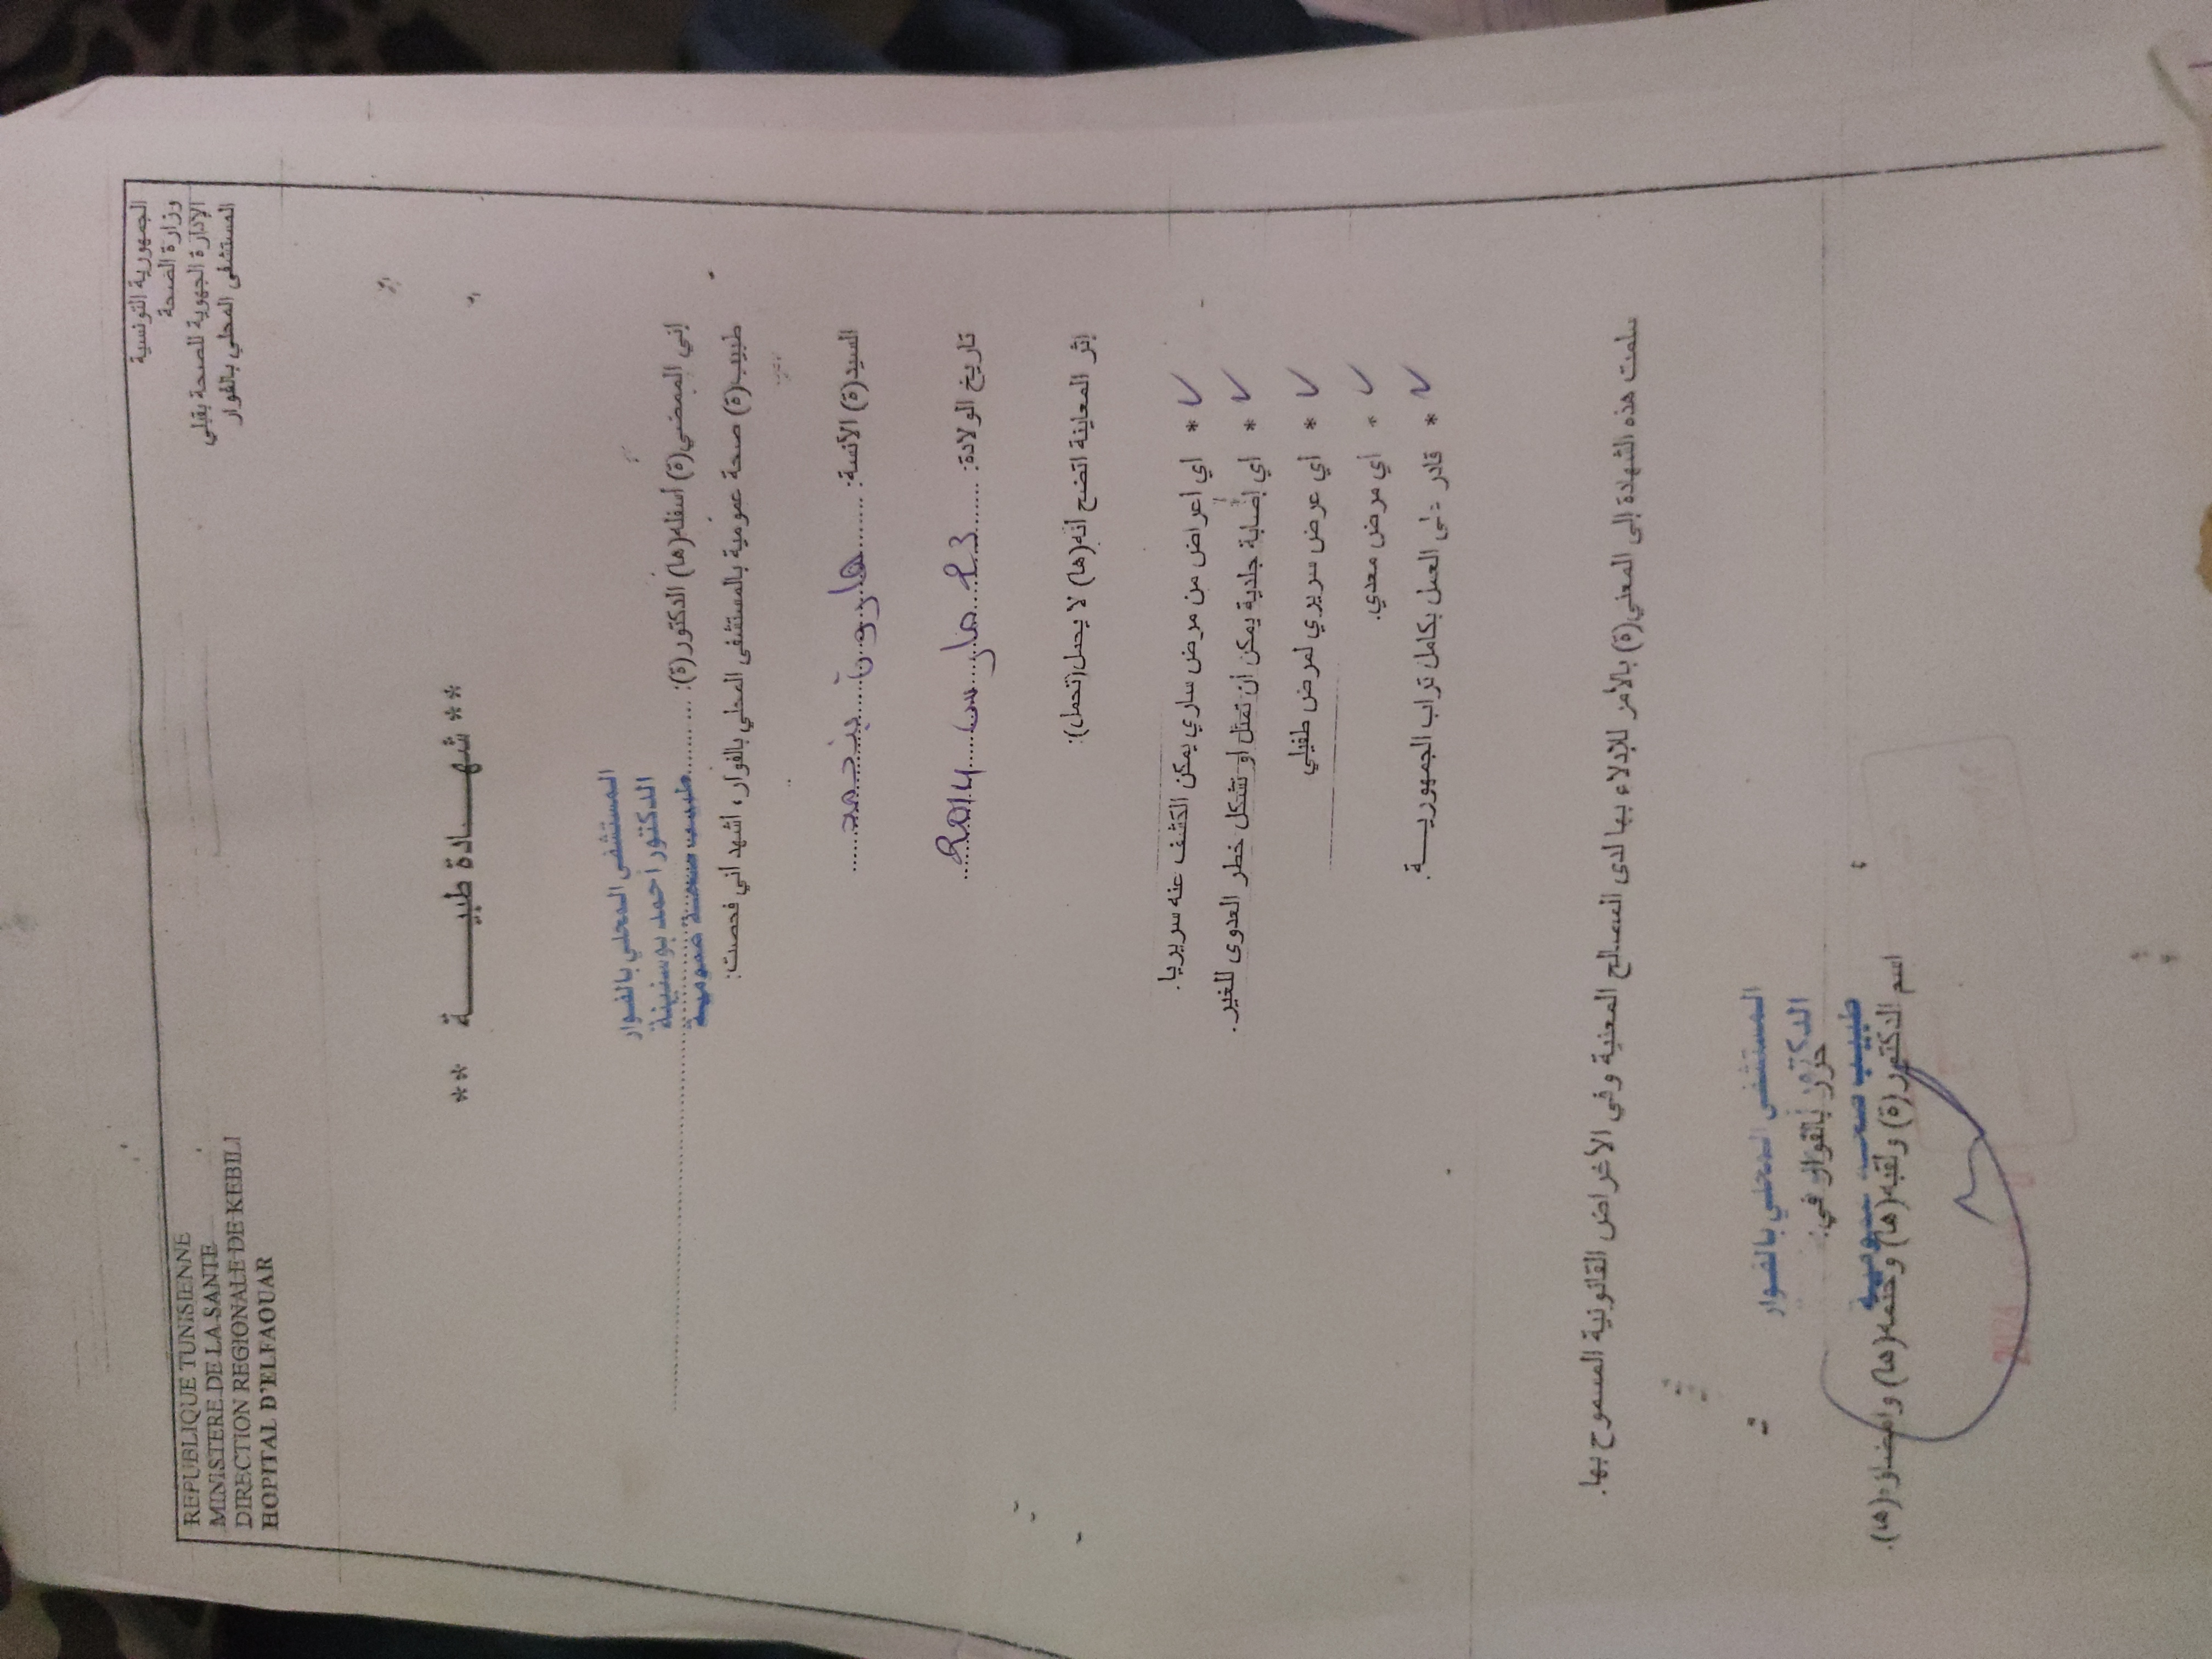 الجمهورية التونسية
وزارة الصحة
الإدارة الجهوية للصحة بقبلي
المستشفى المحلي بالفوار
REPUBLIQUE TUNISIENNE
MINISTERE DE LA SANTE
DIRECTION REGIONALE DE KEBILI
HOPITAL D'ELFAOUAR
** شهـــادة طبيـــــة **
المستشفى المحلي بالفوار
الدكتور أحمد بوسنينة
طبيب صحة عمومية
إني الممضي(ة) أسفله(ها) الدكتور(ة):
طبيب(ة) صحة عمومية بالمستشفى المحلي بالفوار، أشهد أني فحصت:
السيد(ة) الآنسة: هارون بن
تاريخ الولادة: 23 مارس 2014
إثر المعاينة اتضح أنه(ها) لا يحمل(تحمل):
✓ * أي أعراض من مرض ساري يمكن الكشف عنه سريريا.
✓ * أي إصابة جلدية يمكن أن تمثل او تشكل خطر العدوى للغير.
✓ * أي عرض سريري لمرض طفيلي
✓ * أي مرض معدي.
✓ * قادر على العمل بكامل تراب الجمهوريـــة.
سلمت هذه الشهادة إلى المعني(ة) بالأمر للإدلاء بها لدى المصالح المعنية وفي الأغراض القانونية المسموح بها.
المستشفى المحلي بالفوار
الدكتور
حرر بالفوار في:
طبيب صحة عمومية
اسم الدكتور(ة) ولقبه(ها) وختمه(ها) وإمضاؤه(ها).